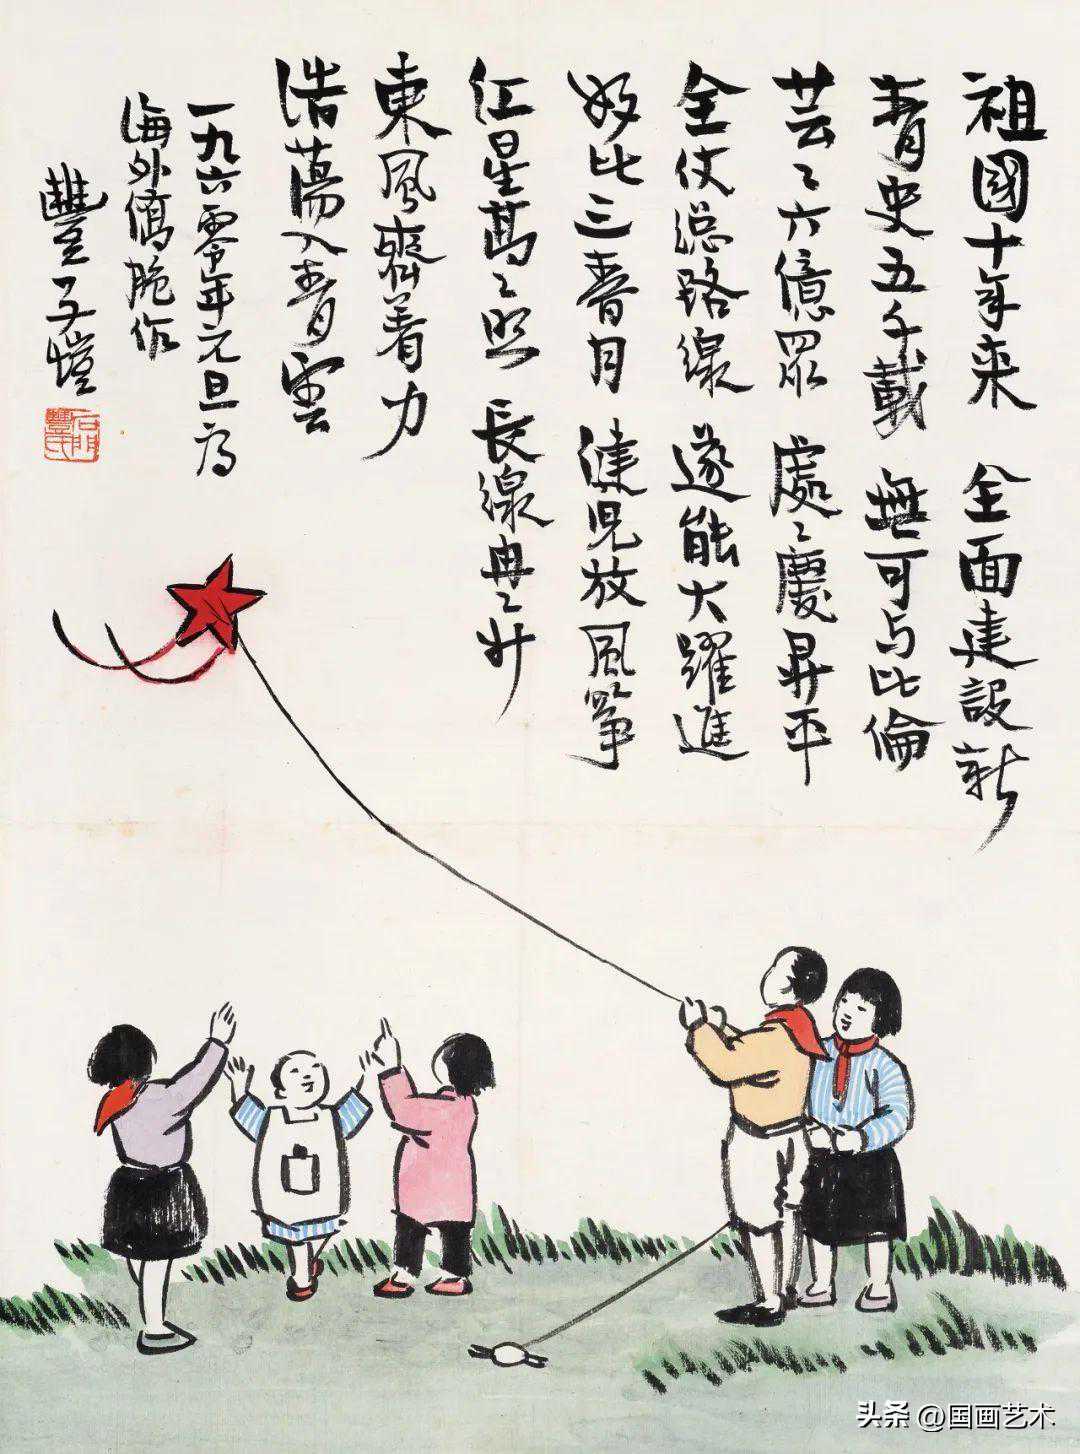 祖國十年来 全面建設新
青史五千載 無可与比倫
芸〻六億眾 處〻慶昇平
全仗总路線 遂能大躍進
好比三春月 健児放風箏
红星髙〻照 長線冉〻升
東風齊着力
浩蕩入青雲
一九六零年元旦为
海外僑胞作
豐子愷
石門豐氏
头条 @国画艺术